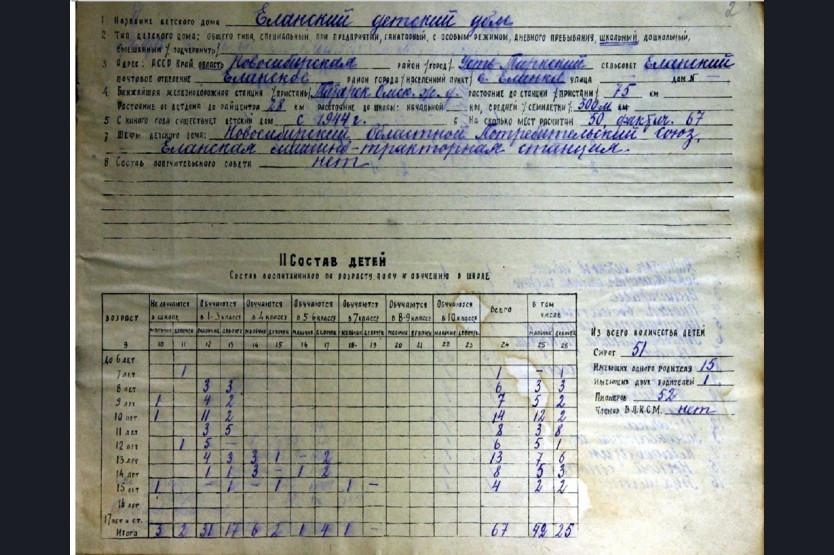 2
1 Название детского дома Еланский детский дом
2 Тип детского дома: общего типа, специальный, при предприятии, санаторный, с особым режимом, дневного пребывания, школьный дошкольный,
смешанный /подчеркнуть/
3 Адрес: АССР край область Новосибирская район /город/ Усть-Таркский сельсовет Еланский
почтовое отделение Еланское район города /населенный пункт/ с. Еланка улица — дом № —
4 Ближайшая железнодорожная станция /пристань/ Татарск Омск. ж. д. растояние до станции /пристани/ 75 км
Растояние от детдома до райцентра 28 км растояние до школы: начальной км, средней /семилетки/ 300м км
5 С какого года существует детский дом с 1944 г. 6 На сколько мест расчитан 50, фактич. 67
7 Шефы детского дома: Новосибирский Областной Потребительский Союз,
Еланская машинно-тракторная станция.
8 Состав попечительского совета нет
II Состав детей
Состав воспитанников по возрасту, полу и обучению в школе
возраст Не обучаются в школе Обучаются в 1-3 классе Обучаются в 4 классе Обучаются в 5-6 классе Обучаются в 7 классе Обучаются в 8-9 классе Обучаются в 10 классе Всего В том числе
мальчик девочек мальчик девочек мальчик девочек мальчик девочек мальчик девочек мальчик девочек мальчик девочек мальчик девочек
9 10 11 12 13 14 15 16 17 18 19 20 21 22 23 24 25 26
До 6 лет
7 лет 1 1 - 1
8 лет 3 3 6 3 3
9 лет 1 4 2 7 5 2
10 лет 1 11 2 14 12 2
11 лет 3 5 8 3 8
12 лет 1 5 - 6 5 1
13 лет 4 3 3 1 - 2 13 7 6
14 лет 1 1 3 - 1 2 8 5 3
15 лет 1 - 1 - 1 1 - 4 2 2
16 лет
17 лет и ст.
Итого 3 2 31 17 6 2 1 4 1 - 67 42 25
Из всего количества детей
Сирот 51
Имеющих одного родителя 15
Имеющих двух родителей 1
Пионеров 52
Членов ВЛКСМ. нет